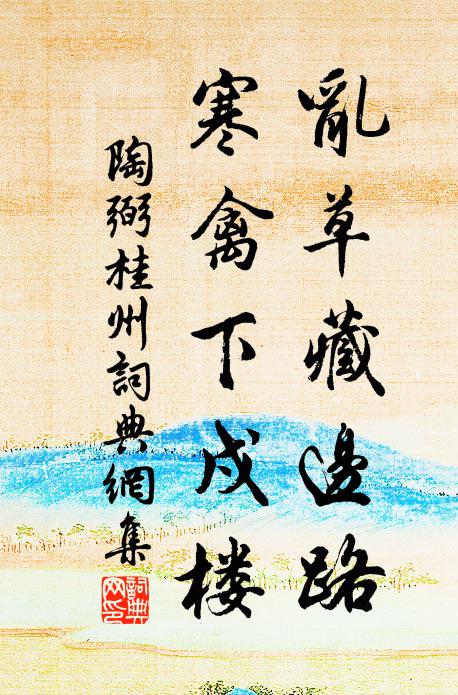 亂草藏邊路
寒禽下戍楼
陶弼桂州詞典網集
詞典